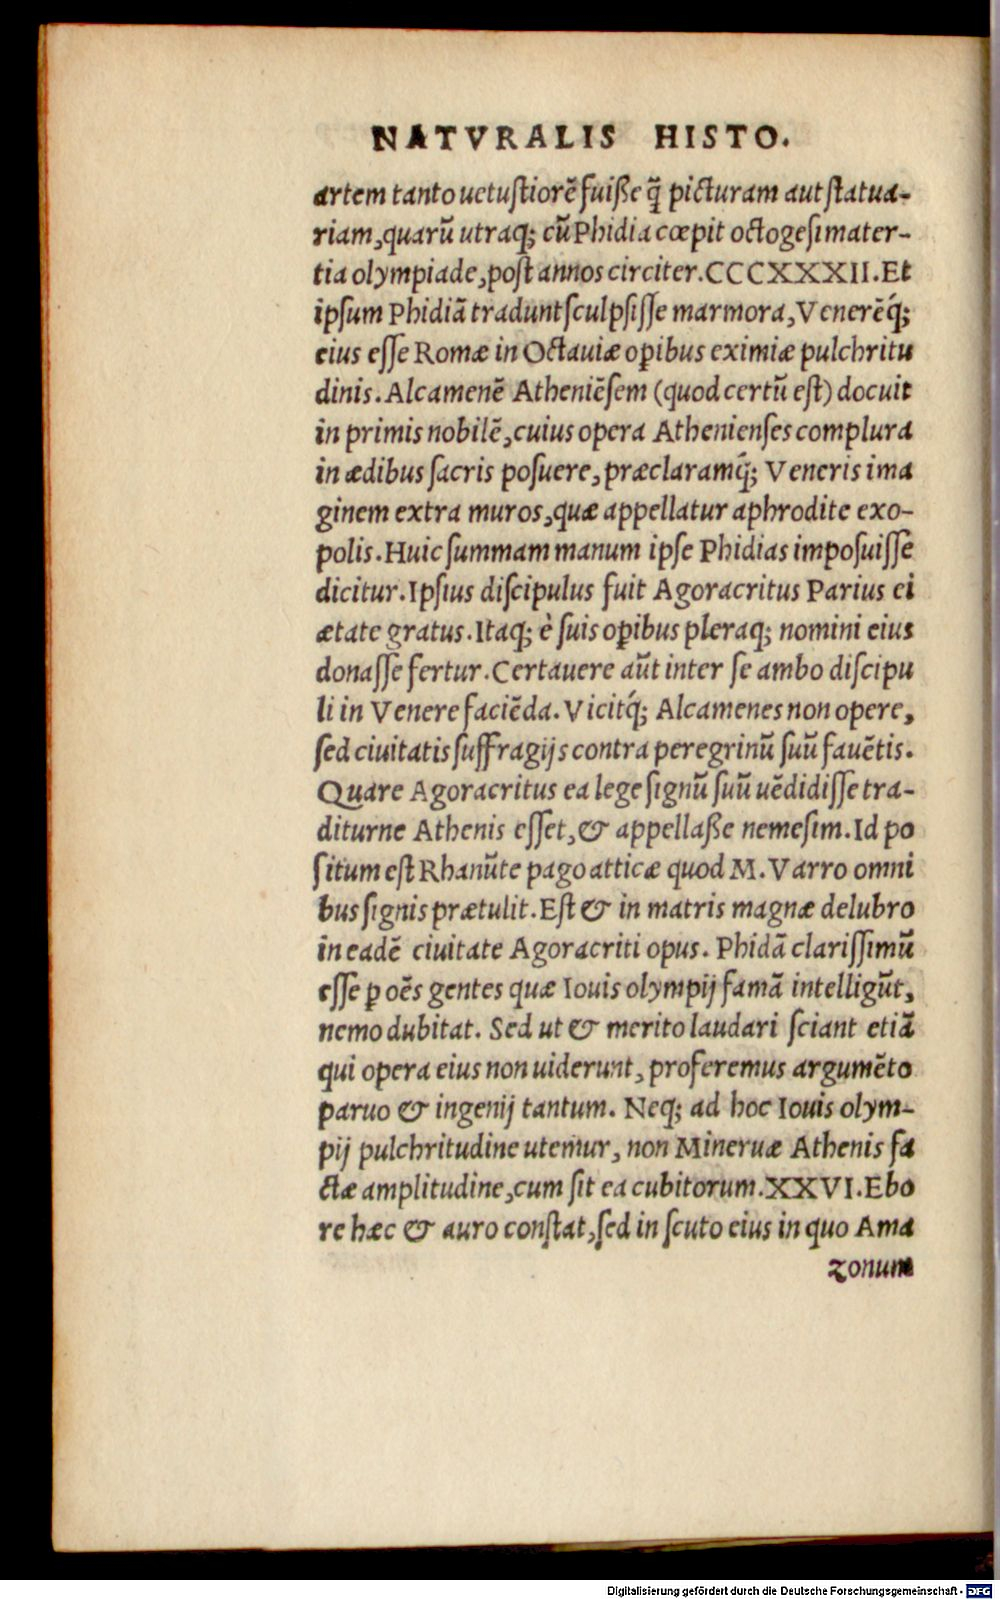 NATVRALIS HISTO.
artem tanto uetustiorē fuiße q̃ picturam aut statua-
riam, quarū utraq; cū Phidia cœpit octogesima ter-
tia olympiade, post annos circiter. CCCXXXII. Et
ipsum Phidiā tradunt sculpsisse marmora, Venerēq́;
eius esse Romæ in Octauiæ oꝑibus eximiæ pulchritu
dinis. Alcamenē Atheniēsem (quod certū est) docuit
in primis nobilē, cuius opera Athenienses complura
in ædibus sacris posuere, præclaramq́; Veneris ima
ginem extra muros, quæ appellatur aphrodite exo-
polis. Huic summam manum ipse Phidias imposuisse
dicitur. Ipsius discipulus fuit Agoracritus Parius ei
ætate gratus. Itaq; è suis oꝑibus pleraq; nomini eius
donasse fertur. Certauere aūt inter se ambo discipu
li in Venere faciēda. Vicitq́; Alcamenes non opere,
sed ciuitatis suffragijs contra peregrinū suū fauētis.
Quare Agoracritus ea lege signū suū uēdidisse tra-
diturne Athenis esset, & appellaße nemesim. Id po
situm est Rhanūte pago atticæ quod M. Varro omni
bus signis prætulit. Est & in matris magnæ delubro
in eadē ciuitate Agoracriti opus. Phidā clarissimū
esse ꝑ oēs gentes quæ Iouis olympij famā intelligūt,
nemo dubitat. Sed ut & merito laudari sciant etiā
qui opera eius non uiderunt, proferemus argumēto
paruo & ingenij tantum. Neq; ad hoc Iouis olym-
pij pulchritudine utemur, non Mineruæ Athenis fa
ctæ amplitudine, cum sit ea cubitorum. XXVI. Ebo
re hæc & auro constat, sed in scuto eius in quo Ama
zonum
Digitalisierung gefördert durch die Deutsche Forschungsgemeinschaft - DFG